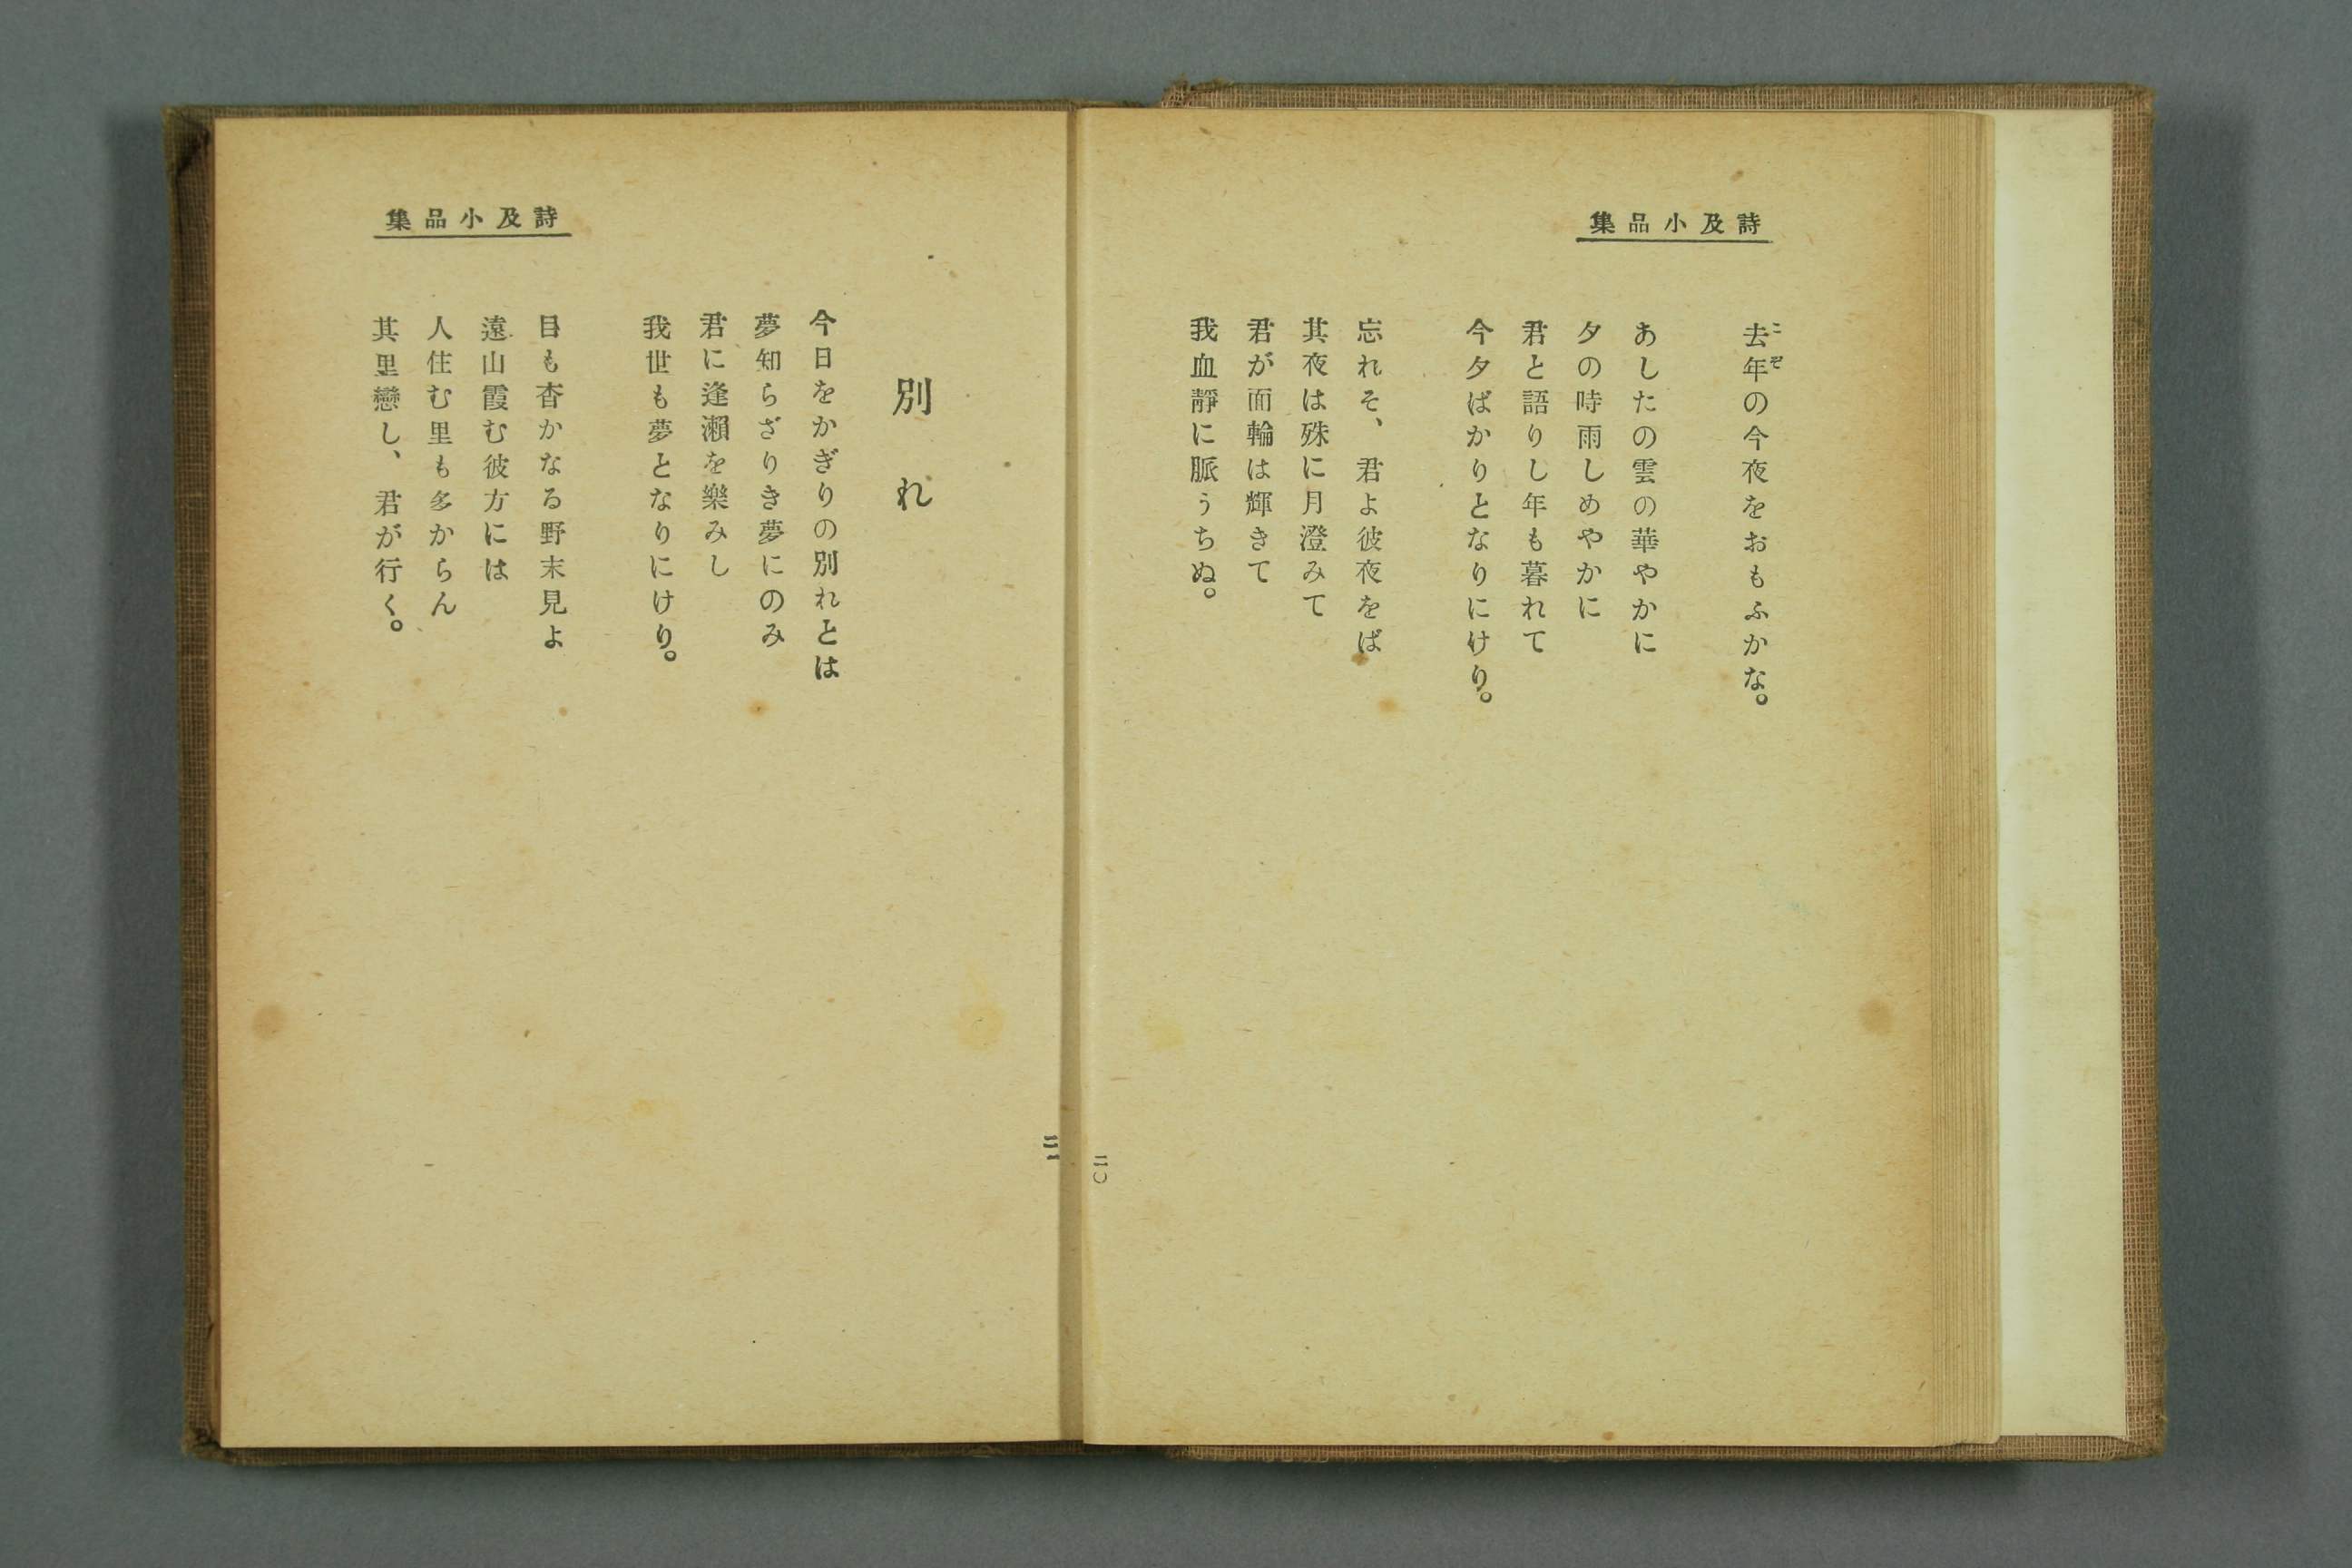 詩及小品集
去年の今夜をおもふかな。
こぞ
あしたの雲の華やかに
夕の時雨しめやかに
君と語りし年も暮れて
今夕ばかりとなりにけり。
忘れそ、君よ彼夜をば
其夜は殊に月澄みて
君が面輪は輝きて
我血靜に脈うちぬ。
二〇
詩及小品集
別れ
今日をかぎりの別れとは
夢知らざりき夢にのみ
君に逢瀨を樂みし
我世も夢となりにけり。
目も杳かなる野末見よ
遠山霞む彼方には
人住む里も多からん
其里戀し、君が行く。
二一